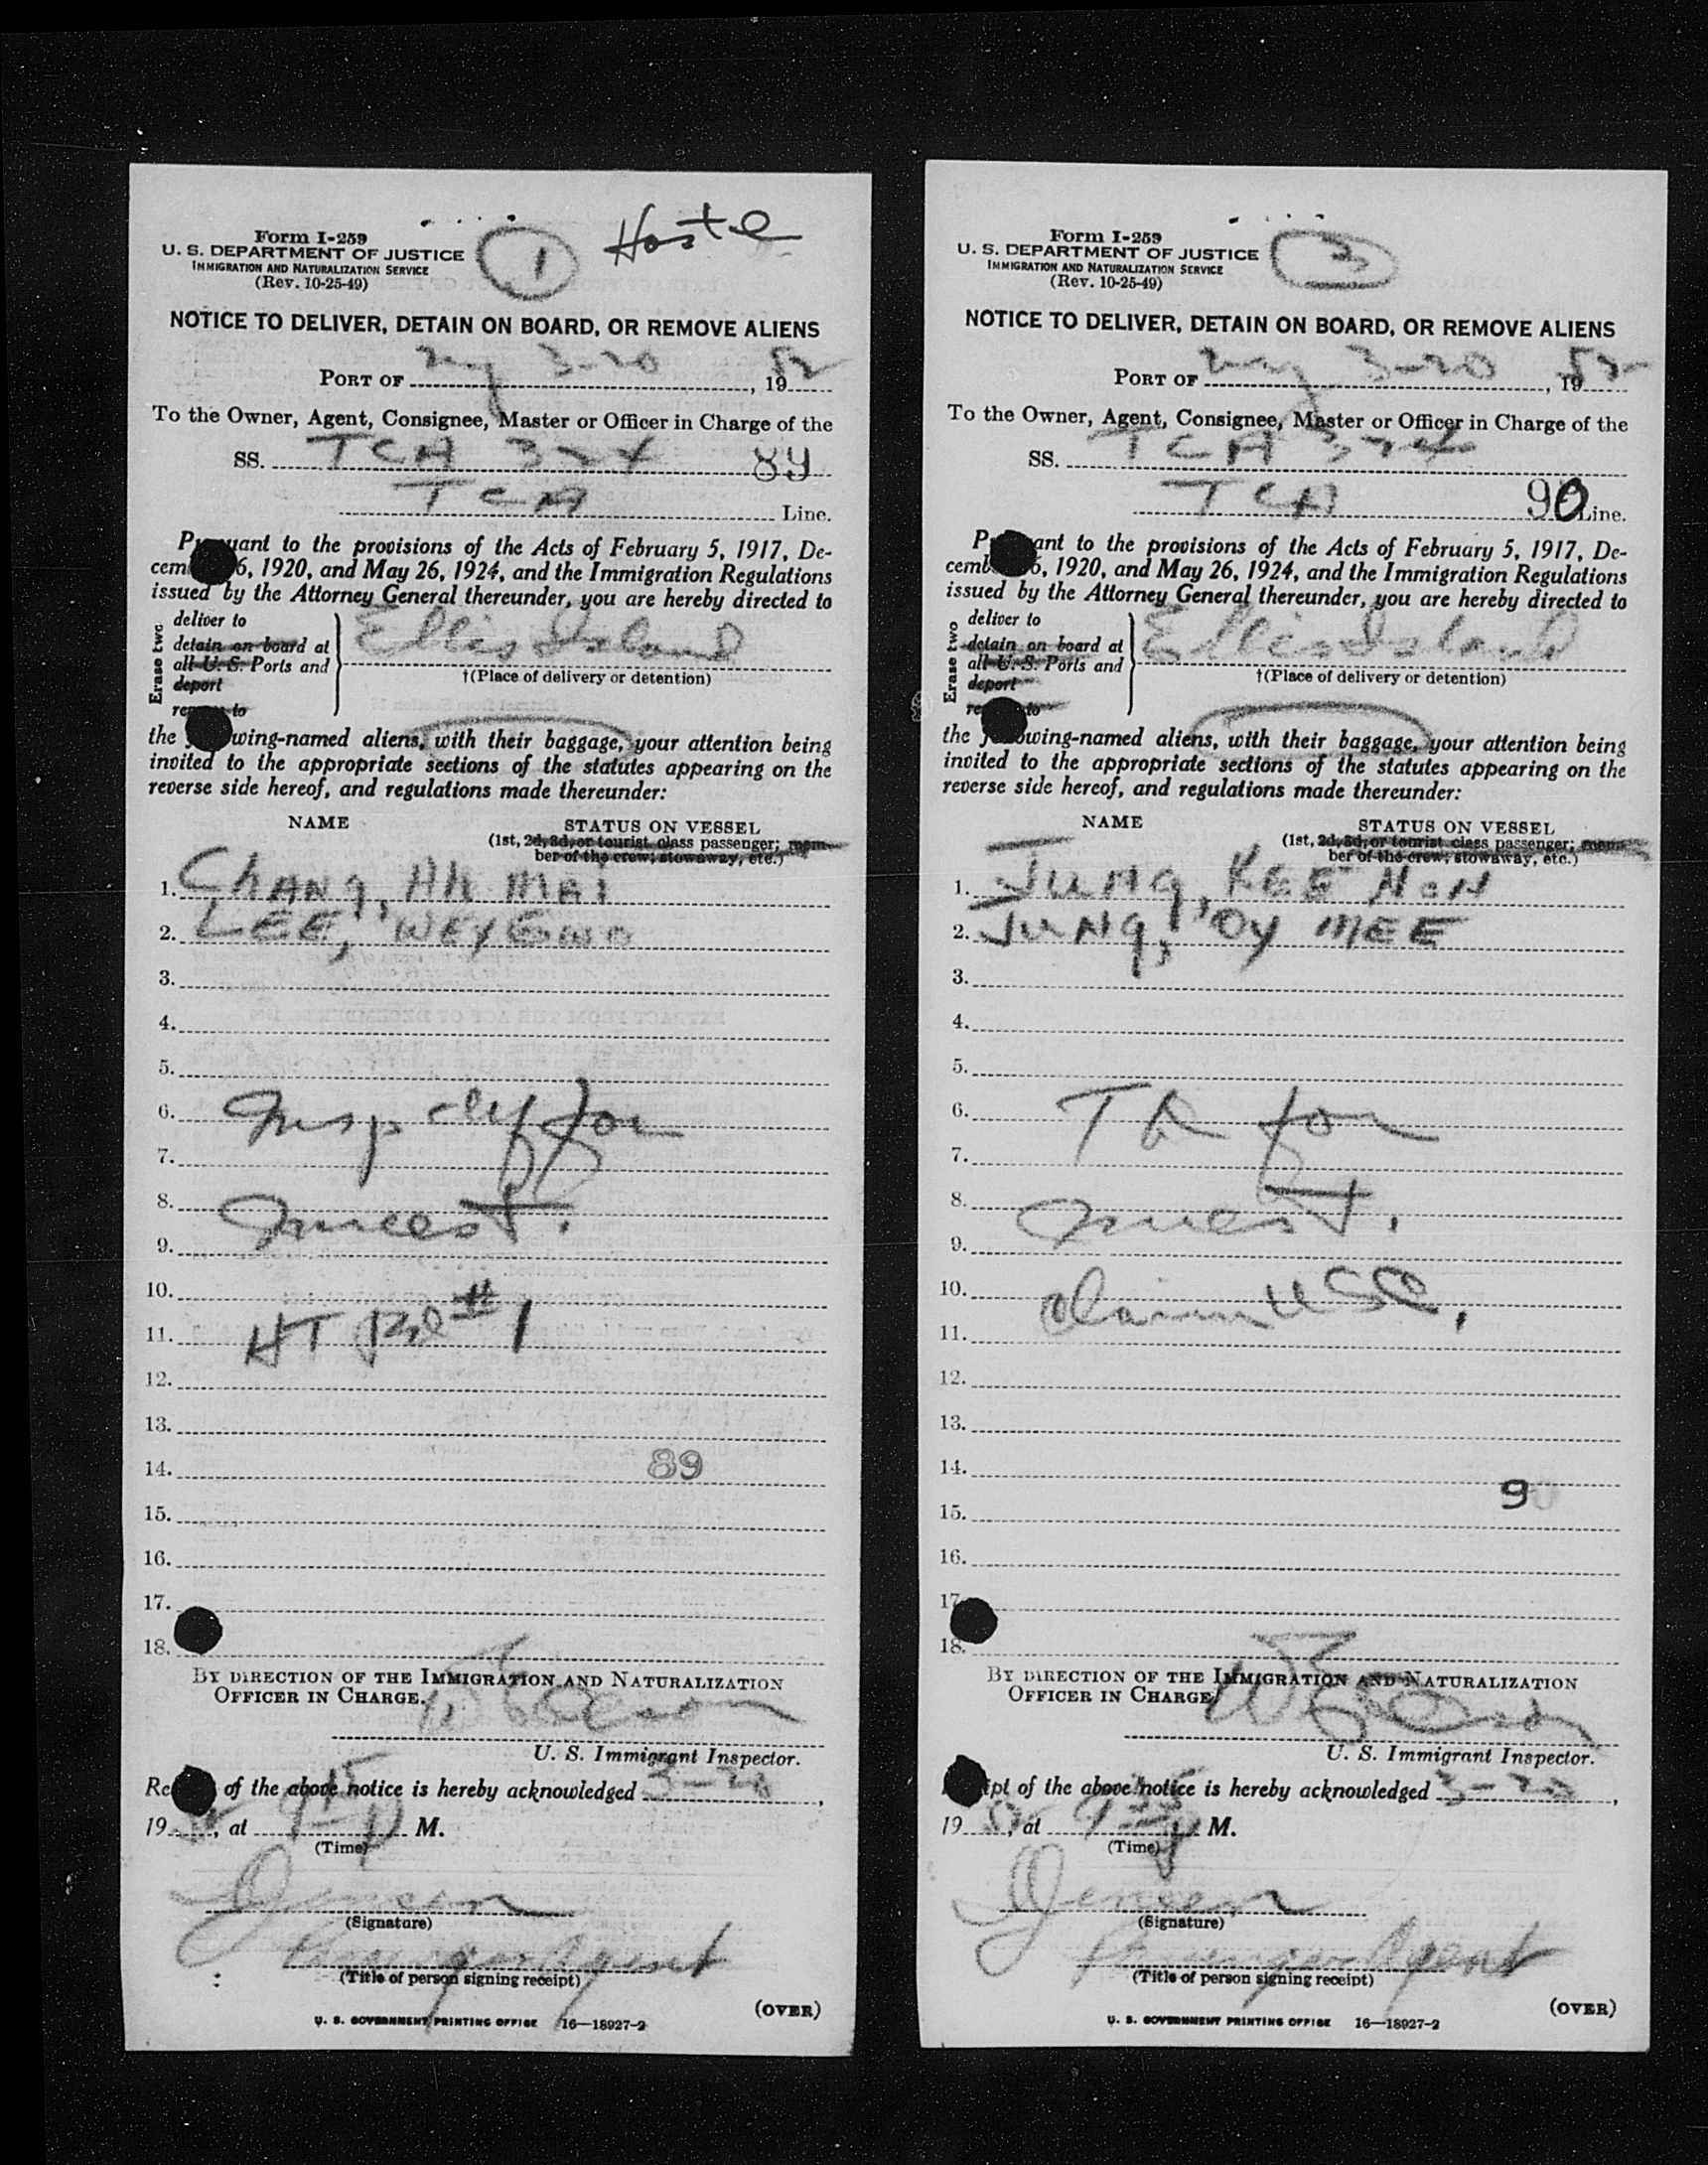 Form I-259
U. S. DEPARTMENT OF JUSTICE
IMMIGRATION AND NATURALIZATION SERVICE
(Rev. 10-25-49)
1
NOTICE TO DELIVER, DETAIN ON BOARD, OR REMOVE ALIENS
PORT OF NY 3-20, 1952
To the Owner, Agent, Consignee, Master or Officer in Charge of the
SS. TCA 324 89
TCA Line.
Pursuant to the provisions of the Acts of February 5, 1917, De-
cember 6, 1920, and May 26, 1924, and the Immigration Regulations
issued by the Attorney General thereunder, you are hereby directed to
Erase two
deliver to
detain on board at
all U. S. Ports and
deport
remove to
Ellis Island
†(Place of delivery or detention)
the following-named aliens, with their baggage, your attention being
invited to the appropriate sections of the statutes appearing on the
reverse side hereof, and regulations made thereunder:
NAME STATUS ON VESSEL
(1st, 2d, 3d, or tourist class passenger; mem-
ber of the crew; stowaway, etc.)
1. CHANG, AH MAI
2. LEE, WEY
3.
4.
5.
6. Insp for
7.
8.
9.
10.
11. HT #1
12.
13.
14. 89
15.
16.
17.
18.
BY DIRECTION OF THE IMMIGRATION AND NATURALIZATION
OFFICER IN CHARGE.
U. S. Immigrant Inspector.
Receipt of the above notice is hereby acknowledged 3-20,
19 52, at M.
(Time)
Jensen
(Signature)
Passenger Agent
(Title of person signing receipt)
(OVER)
U. S. GOVERNMENT PRINTING OFFICE 16—18927-2
Form I-259
U. S. DEPARTMENT OF JUSTICE
IMMIGRATION AND NATURALIZATION SERVICE
(Rev. 10-25-49)
3
NOTICE TO DELIVER, DETAIN ON BOARD, OR REMOVE ALIENS
PORT OF NY 3-20, 1952
To the Owner, Agent, Consignee, Master or Officer in Charge of the
SS. TCA 324
TCA 90 Line.
Pursuant to the provisions of the Acts of February 5, 1917, De-
cember 6, 1920, and May 26, 1924, and the Immigration Regulations
issued by the Attorney General thereunder, you are hereby directed to
Erase two
deliver to
detain on board at
all U. S. Ports and
deport
remove to
Ellis Island
†(Place of delivery or detention)
the following-named aliens, with their baggage, your attention being
invited to the appropriate sections of the statutes appearing on the
reverse side hereof, and regulations made thereunder:
NAME STATUS ON VESSEL
(1st, 2d, 3d, or tourist class passenger; mem-
ber of the crew; stowaway, etc.)
1. JUNG, KEE NON
2. JUNG, OY MEE
3.
4.
5.
6. for
7.
8.
9.
10. claim USC.
11.
12.
13.
14.
15. 90
16.
17.
18.
BY DIRECTION OF THE IMMIGRATION AND NATURALIZATION
OFFICER IN CHARGE
U. S. Immigrant Inspector.
Receipt of the above notice is hereby acknowledged 3-20,
19 52, at M.
(Time)
Jensen
(Signature)
Passenger Agent
(Title of person signing receipt)
(OVER)
U. S. GOVERNMENT PRINTING OFFICE 16—18927-2